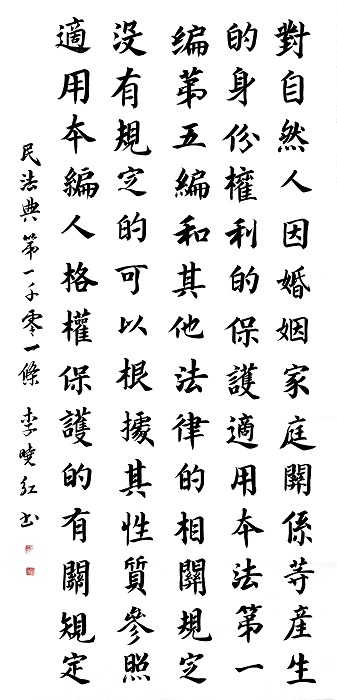 對自然人因婚姻家庭關係等產生
的身份權利的保護適用本法第一
編第五編和其他法律的相關規定
沒有規定的可以根據其性質參照
適用本編人格權保護的有關規定
民法典第一千零一條 李曉紅书